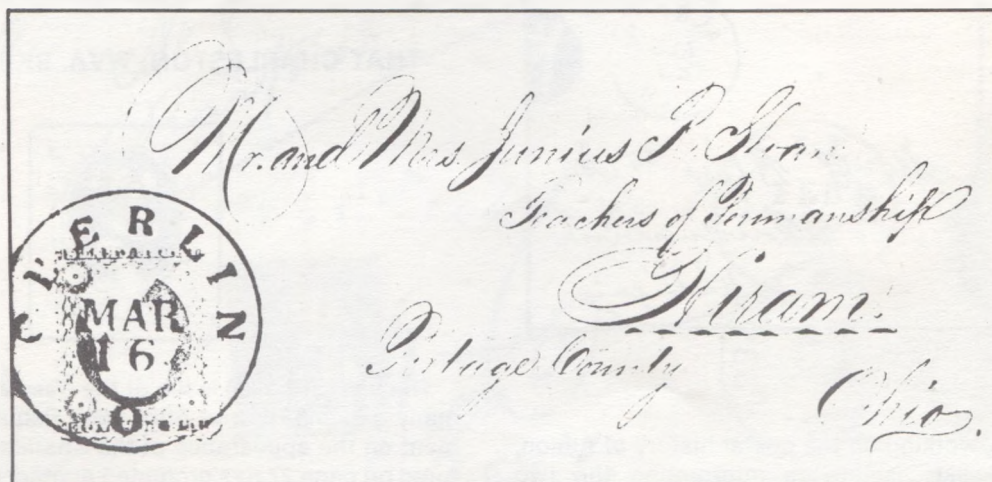 Mr. and Mrs. Junius R. Sloan
Teachers of Penmanship
Hiram.
Portage County
Ohio.
OBERLIN
MAR
16
O